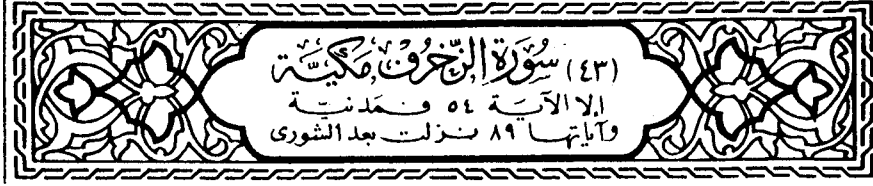 (٤٣) سُورَةُ الزُّخْرُفِ مَكِّيَّة
إلا الآية ٥٤ فمدنية
وآياتها ٨٩ نزلت بعد الشورى